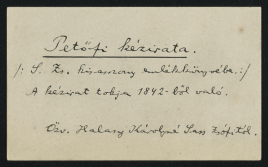 Petőfi kézirata.
/: S. Zs. kisasszony emlékkönyvébe. :/
A kézirat tokja 1842-ből való.
Özv. Halasy Károlyné Sass Zsófitól.